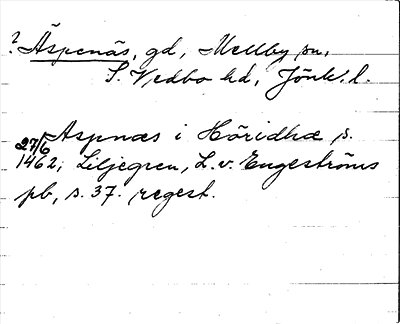 ? Äspenäs, gd, Mellby sn,
S. Vedbo hd, Jönk. l.
27/6 Aspnæs i Höridhæ s.
1462; Liljegren, L. v. Engeströms
pb, s. 37. regest.